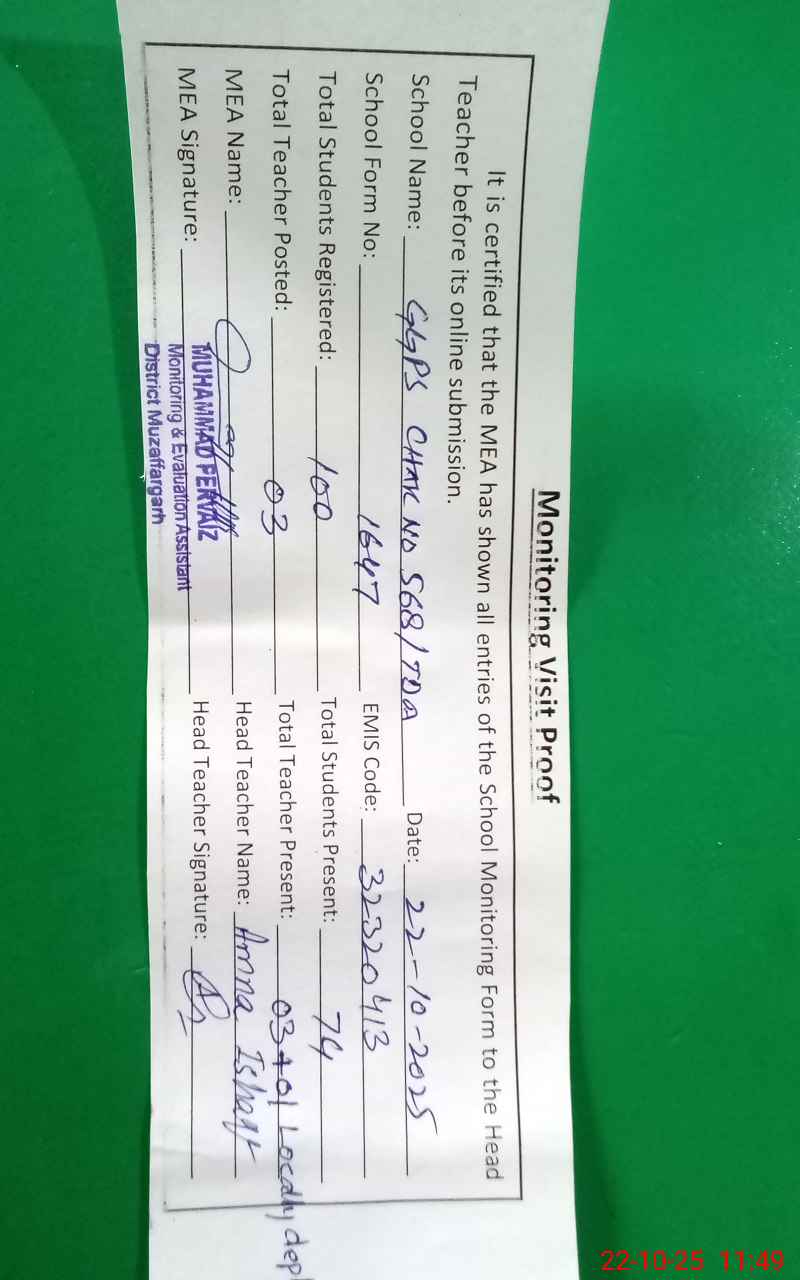 Monitoring Visit Proof
It is certified that the MEA has shown all entries of the School Monitoring Form to the Head
Teacher before its online submission.
School Name: GGPS CHAK NO 568/TDA Date: 22-10-2025
School Form No: 1647 EMIS Code: 32320413
Total Students Registered: 100 Total Students Present: 74
Total Teacher Posted: 03 Total Teacher Present: 03+01 Locally depl
MEA Name: Head Teacher Name: Amna Ishaq
MEA Signature: Head Teacher Signature:
MUHAMMAD PERVAIZ
Monitoring & Evaluation Assistant
District Muzaffargarh
22-10-25 11:49